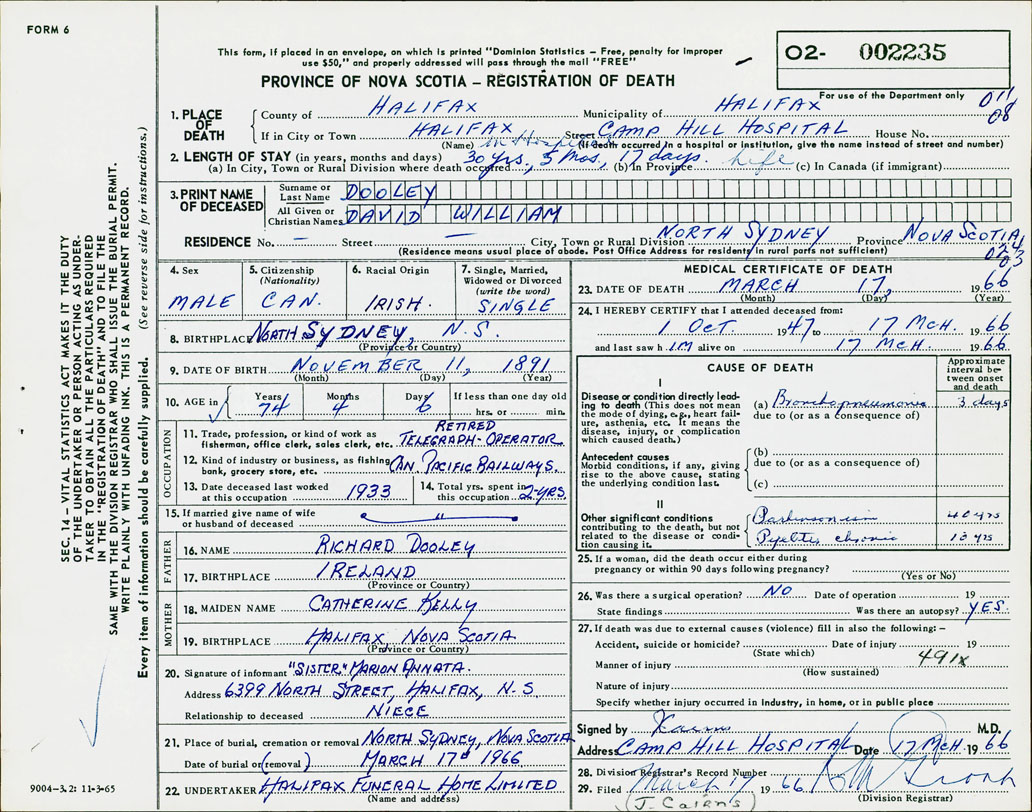 FORM 6
This form, if placed in an envelope, on which is printed "Dominion Statistics – Free, penalty for improper
use $50," and properly addressed will pass through the mail "FREE"
PROVINCE OF NOVA SCOTIA – REGISTRATION OF DEATH
O2- 002235
For use of the Department only
011
08
1. PLACE OF DEATH
County of HALIFAX Municipality of HALIFAX
If in City or Town HALIFAX Street CAMP HILL HOSPITAL House No.
(Name) in Hospital (If death occurred in a hospital or institution, give the name instead of street and number)
2. LENGTH OF STAY (in years, months and days) 30 yrs, 5 Mos, 17 days. life
(a) In City, Town or Rural Division where death occurred (b) In Province (c) In Canada (if immigrant)
3. PRINT NAME OF DECEASED
Surname or Last Name DOOLEY
All Given or Christian Names DAVID WILLIAM
RESIDENCE No. – Street – City, Town or Rural Division NORTH SYDNEY Province NOVA SCOTIA
(Residence means usual place of abode. Post Office Address for residents in rural parts not sufficient)
4. Sex
MALE
5. Citizenship (Nationality)
CAN.
6. Racial Origin
IRISH.
7. Single, Married, Widowed or Divorced (write the word)
SINGLE
8. BIRTHPLACE NORTH SYDNEY, N.S.
(Province or Country)
9. DATE OF BIRTH NOVEMBER 11, 1891
(Month) (Day) (Year)
10. AGE in Years 74 Months 4 Days 6 If less than one day old
hrs. or min.
OCCUPATION
11. Trade, profession, or kind of work as fisherman, office clerk, sales clerk, etc. RETIRED TELEGRAPH-OPERATOR
12. Kind of industry or business, as fishing, bank, grocery store, etc. CAN. PACIFIC RAILWAYS.
13. Date deceased last worked at this occupation 1933
14. Total yrs. spent in this occupation 2-YRS
15. If married give name of wife or husband of deceased
FATHER
16. NAME RICHARD DOOLEY
17. BIRTHPLACE IRELAND
(Province or Country)
MOTHER
18. MAIDEN NAME CATHERINE KELLY
19. BIRTHPLACE HALIFAX, NOVA SCOTIA
(Province or Country)
20. Signature of informant "SISTER" MARION ANNATA.
Address 6399 NORTH STREET, HALIFAX, N.S.
Relationship to deceased NIECE
21. Place of burial, cremation or removal NORTH SYDNEY, NOVA SCOTIA
Date of burial or (removal) MARCH 17th 1966
22. UNDERTAKER HALIFAX FUNERAL HOME LIMITED
(Name and address)
MEDICAL CERTIFICATE OF DEATH
23. DATE OF DEATH MARCH 17, 1966
(Month) (Day) (Year)
24. I HEREBY CERTIFY that I attended deceased from:
1 OCT. 1947 to 17 MCH. 1966
and last saw h IM alive on 17 MCH. 1966.
CAUSE OF DEATH
Approximate interval between onset and death
I
Disease or condition directly leading to death (This does not mean the mode of dying, e.g., heart failure, asthenia, etc. It means the disease, injury, or complication which caused death.)
(a) Bronchopneumonia 3 days
due to (or as a consequence of)
Antecedent causes
Morbid conditions, if any, giving rise to the above cause, stating the underlying condition last.
(b)
due to (or as a consequence of)
(c)
II
Other significant conditions
contributing to the death, but not related to the disease or condition causing it.
Parkinsonism 40 yrs
Pyelitis, chronic 10 yrs
25. If a woman, did the death occur either during pregnancy or within 90 days following pregnancy?
(Yes or No)
26. Was there a surgical operation? NO Date of operation 19
State findings Was there an autopsy? YES.
27. If death was due to external causes (violence) fill in also the following: –
Accident, suicide or homicide? Date of injury 19
(State which)
491X
Manner of injury
(How sustained)
Nature of injury
Specify whether injury occurred in industry, in home, or in public place
Signed by M.D.
Address CAMP HILL HOSPITAL Date 17 MCH 1966
28. Division Registrar's Record Number
29. Filed March 17 1966
(Division Registrar)
(J. Cairns)
SEC. 14 – VITAL STATISTICS ACT MAKES IT THE DUTY
OF THE UNDERTAKER OR PERSON ACTING AS UNDER-
TAKER TO OBTAIN ALL THE PARTICULARS REQUIRED
IN THE "REGISTRATION OF DEATH" AND TO FILE THE
SAME WITH THE DIVISION REGISTRAR WHO SHALL ISSUE THE BURIAL PERMIT.
WRITE PLAINLY WITH UNFADING INK. THIS IS A PERMANENT RECORD.
Every item of information should be carefully supplied. (See reverse side for instructions.)
9004-3.2: 11-3-65